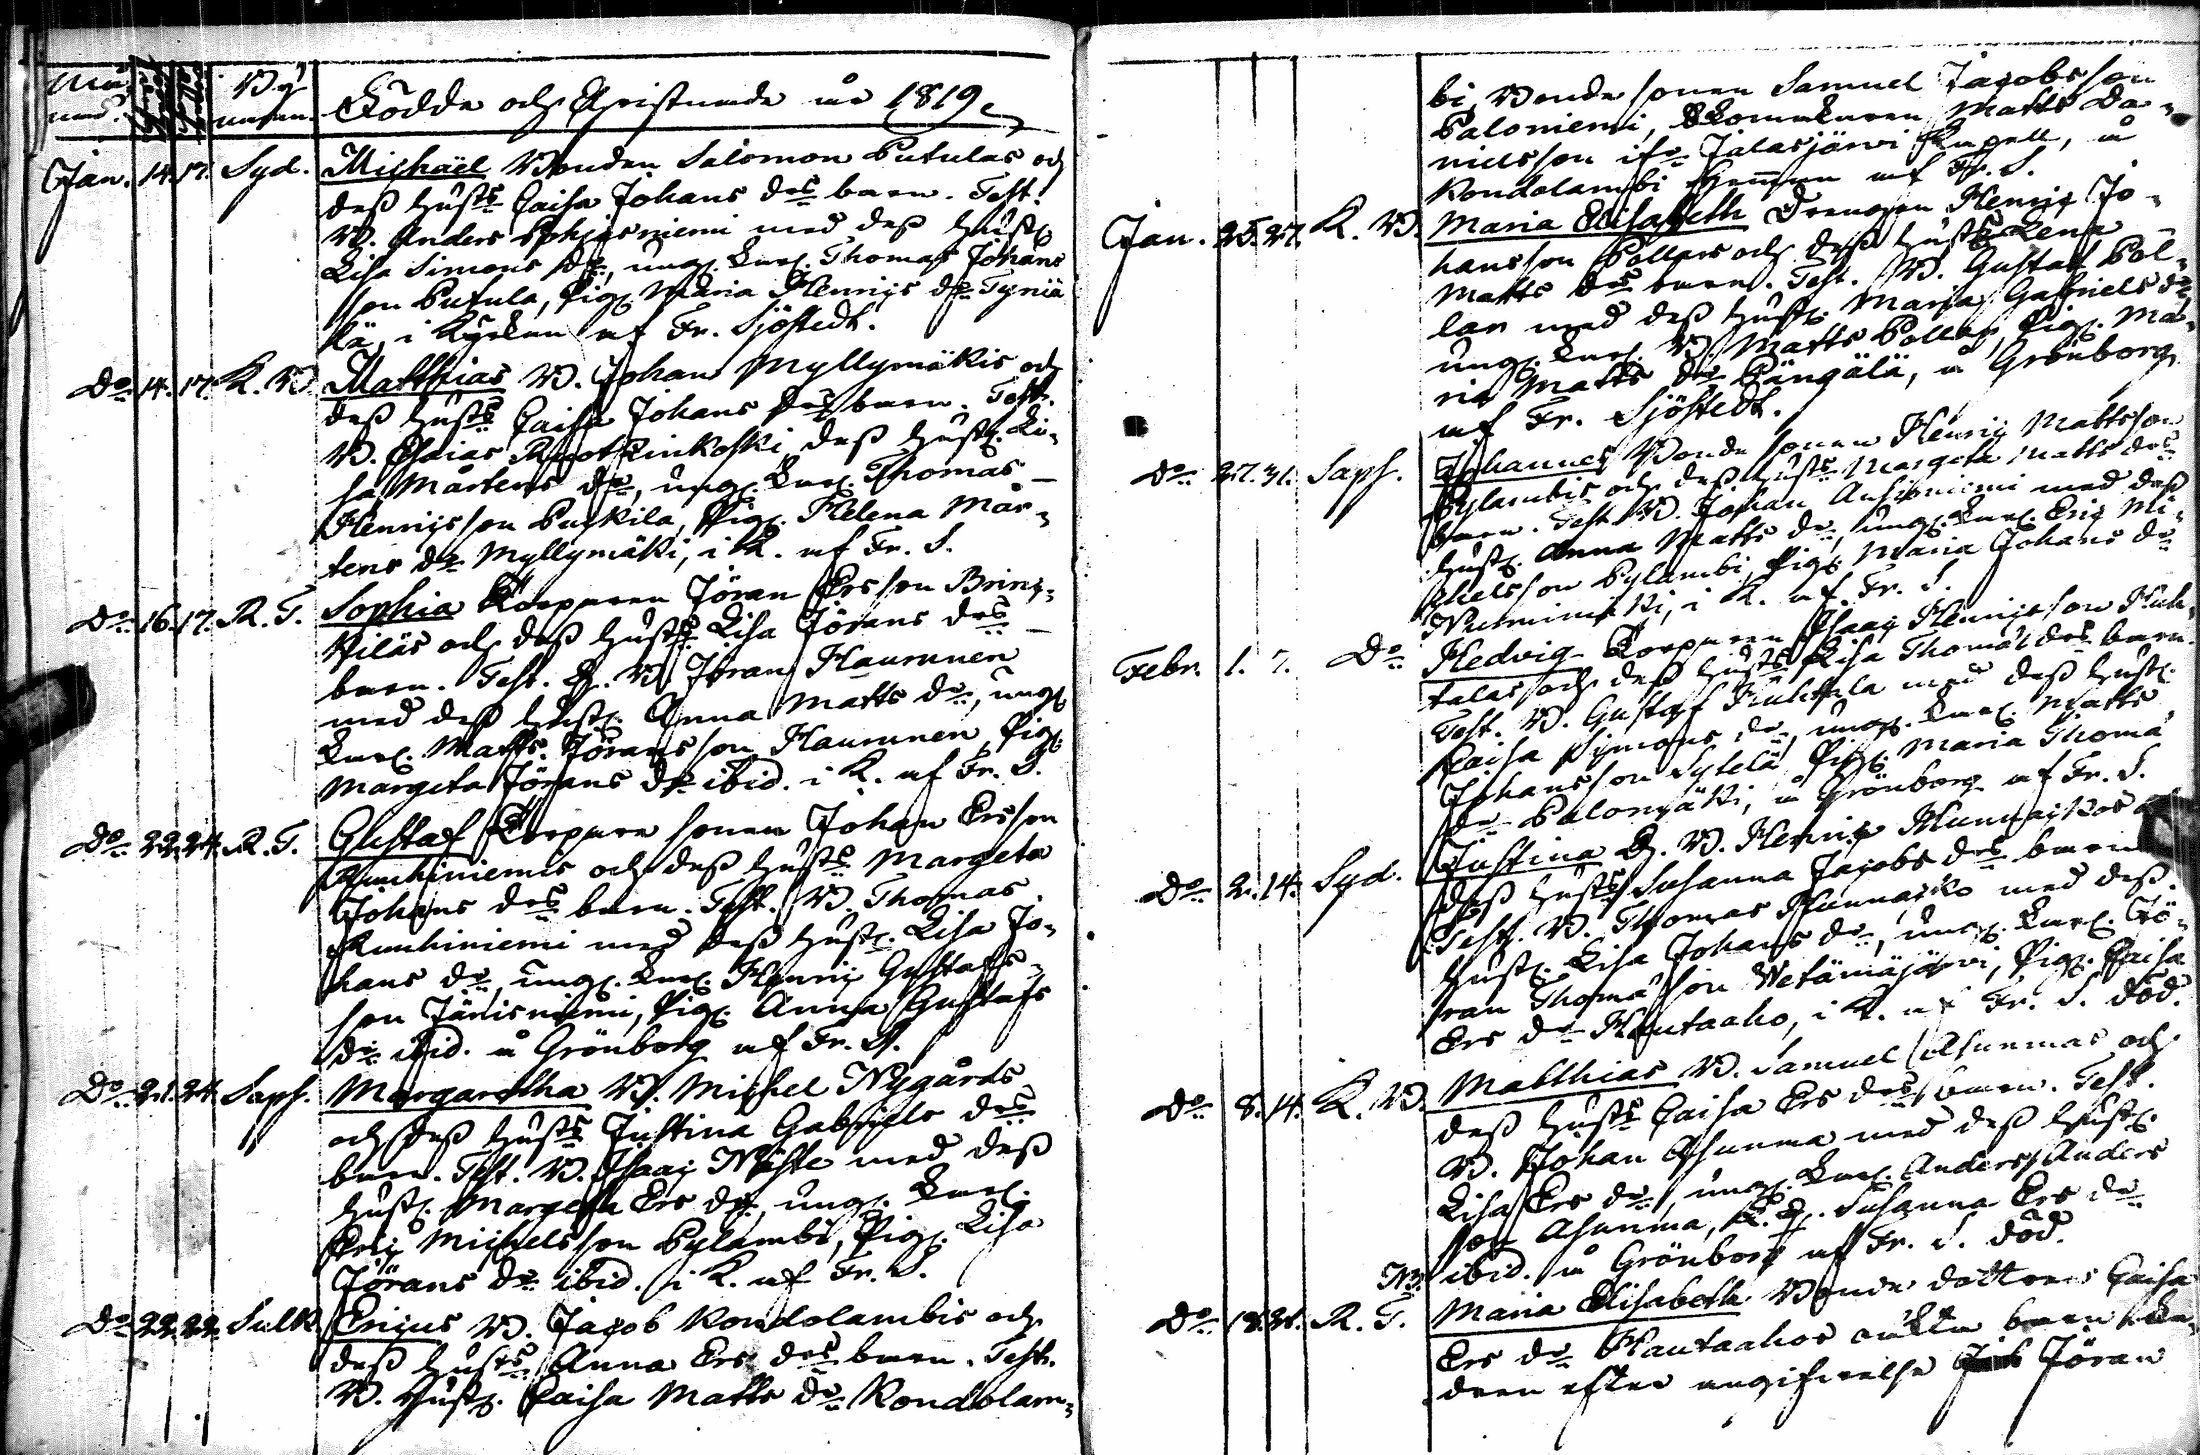 Må- Byn
nad. namn. Födde och Christnade år 1819
Jan. 14. 17. Syd. Michaël Bonden Salomon Putulas och
deß hustrs Caisa Johans drs barn. Test.
B. Anders Pohjasniemi med deß hust.
Lisa Simons dr, ung. karl. Thomas Johans
son Putula, Pig. Maria Henrics dr Tyniä
lä, i Kyrkan af Fr. Sjöstedt.
Do 14. 17. K. B. Matthias B. Johan Myllymäkis och
deß hustrs Caisa Johans drs barn. Test.
B. Esaias Ruotzinkoski deß hust. Li-
sa Mårtens dr, ung. karl. Thomas
Henricsson Puskila, Pig. Helena Mår-
tens dr Myllymäki, i K. af Fr. S.
Do 16. 17. R. T. Sophia Torparen Jöran Ersson Brinx-
kiläs och deß hustrs Lisa Jörans drs
barn. Test. B. Jöran Haurunen
med deß hust. Anna Matts dr, ung.
karl. Matts Jöransson Haurunen, Pig.
Margeta Jörans dr ibid. i K. af Fr. S.
Do 22. 24. R. T. Gustaf Torpare sonen Johan Ersson
Ruuhiniemis och deß hustrs Margeta
Johans drs barn. Test. B. Thomas
Ruuhiniemi med deß hust. Lisa Jo-
hans dr, ung. karl. Henric Gustafs-
son Jänisniemi, Pig. Anna Gustafs
dr ibid. å Grönborg af Fr. S.
Do 21. 24. Saph. Margaretha B. Michel Nygårds
och deß hustrs Justina Gabriels drs
barn. Test. B. Isaac Nyste med deß
hust. Margeta Ers dr, ung. karl.
Eric Michelsson Pylambi, Pig. Lisa
Jörans dr ibid. i K. af Fr. S.
Do 22. 22. Sulk. Ericus B. Jacob Kondolambis och
deß hustrs Anna Ers drs barn. Test.
B. Hust. Caisa Matts dr Kondolam-
bi, Bonde sonen Samuel Jacobsson
Paloniemi, Skomakaren Matts Da-
nielsson ifr. Jalasjärvi Capell, å
Kondolambi Hemman af Fr. S.
Jan. 25. 27. K. B. Maria Elisabeth Drengen Henric Jo-
hansson Pollars och deß hustrs Lena
Matts drs barn. Test. B. Gustaf Pol-
lar med deß hust. Maria Gabriels dr
ung. karl. B. Matts Pollar, Pig. Ma-
ria Matts dr Pängälä, å Grönborg
af Fr. Sjöstedt.
Do 27. 31. Saph. Johannes Bonde sonen Henric Mattsson
Pylambis och deß hustrs Margeta Matts drs
barn. Test. B. Johan Autioniemi med deß
hust. Anna Matts dr, ung. karl. Eric Mi-
chelsson Pylambi, Pig. Maria Johans dr
Nurmimäki, i K. af Fr. S.
Febr. 1. 7. Do Hedvig Torparen Isaac Henricsson Huh-
talas och deß hustrs Lisa Thomæ drs barn.
Test. B. Gustaf Huhtala med deß hust.
Caisa Symons dr, ung. karl. Matts
Johansson Sytelä, Pig. Maria Thomæ
dr Palomäki, å Grönborg af Fr. S.
Do 2. 14. Syd. Justina B. Henric Hunnakkos och
deß hustrs Susanna Jacobs drs barn
Test. B. Thomas Hunnakko med deß
hust. Lisa Johans dr, ung. karl. Jö-
ran Thomæ son Wetämäjärvi, Pig. Caisa
Ers dr Hautaaho, i K. af Fr. S. död.
Do 8. 14. K. B. Matthias B. Samuel Asunmas och
deß hustrs Caisa Ers drs barn. Test.
B. Johan Asunma med deß hust.
Lisa Ers dr, ung. karl. Anders Anders
son Asunma, Susanna Ers dr
ibid. å Grönborg af Fr. S. död.
Do 18. 21. R. T. NB. Maria Elisabeth Bonde dottren Caisa
Ers dr Hautaahos oäkta barn
dren efter angifvelse Jöran